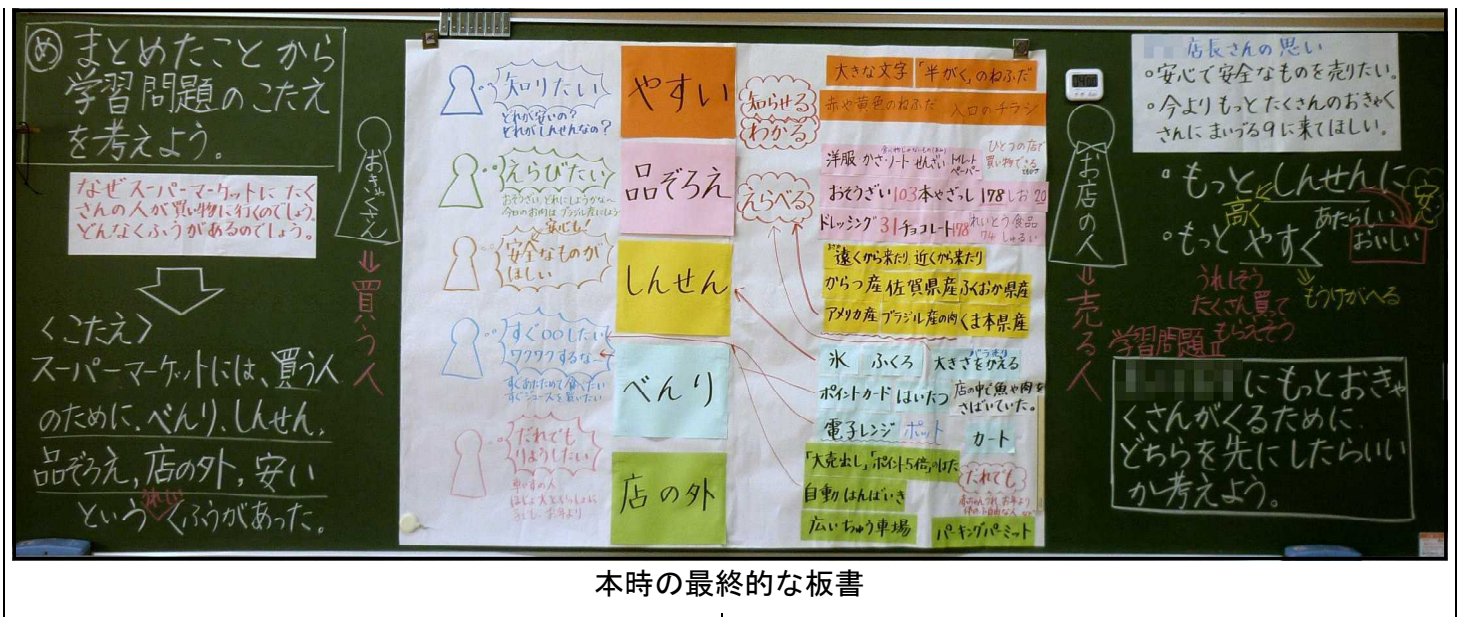 め まとめたことから
学習問題のこたえ
を考えよう。
なぜスーパーマーケットにたく
さんの人が買い物に行くのでしょう。
どんなくふうがあるのでしょう。
<こたえ>
スーパーマーケットには、買う人
のために、べんり、しんせん、
品ぞろえ、店の外、安い
という くふうがあった。
おきゃくさん
⇓買う人
知りたい
どれが安いの?
どれがしんせんなの?
えらびたい
おそうざい、どれにしようかな〜
今日のお肉はブラジル産にしよう
安心も!
安全なものが
ほしい
すぐ○○したい
ワクワクするな〜
すぐあたためて食べたい
すぐジュースを買いたい
だれでも
りようしたい
やすい
品ぞろえ
しんせん
べんり
店の外
知らせる
わかる
えらべる
大きな文字 「半がく」のねふだ
赤や黄色のねふだ 入口のチラシ
洋服 かさ・ノート せんざい トイレットペーパー
ひとつの店で
買い物できる
おそうざい103 本やざっし 178 しお 20
ドレッシング 31 チョコレート 178 れいとう食品
74 しゅるい
遠くから来たり 近くから来たり
からつ産 佐賀県産 ふくおか県産
アメリカ産 ブラジル産の肉 くま本県産
氷 ふくろ 大きさをかえる
ポイントカード はいたつ 店の中で魚や肉を
さばいていた。
電子レンジ ポット カート
「大売出し」「ポイント5倍」のはた
自動はんばいき
だれでも
広いちゅう車場 パーキングパーミット
お店の人
⇓売る人
店長さんの思い
○安心で安全なものを売りたい。
○今よりもっとたくさんのおきゃく
さんにまいづる9に来てほしい。
○もっとしんせんに
高く あたらしい 安心
おいしい
○もっとやすく
うれしそう
たくさん買って
もらえそう
⇓もうけがへる
学習問題Ⅱ
にもっとおきゃ
くさんがくるために、
どちらを先にしたらいい
か考えよう。
本時の最終的な板書